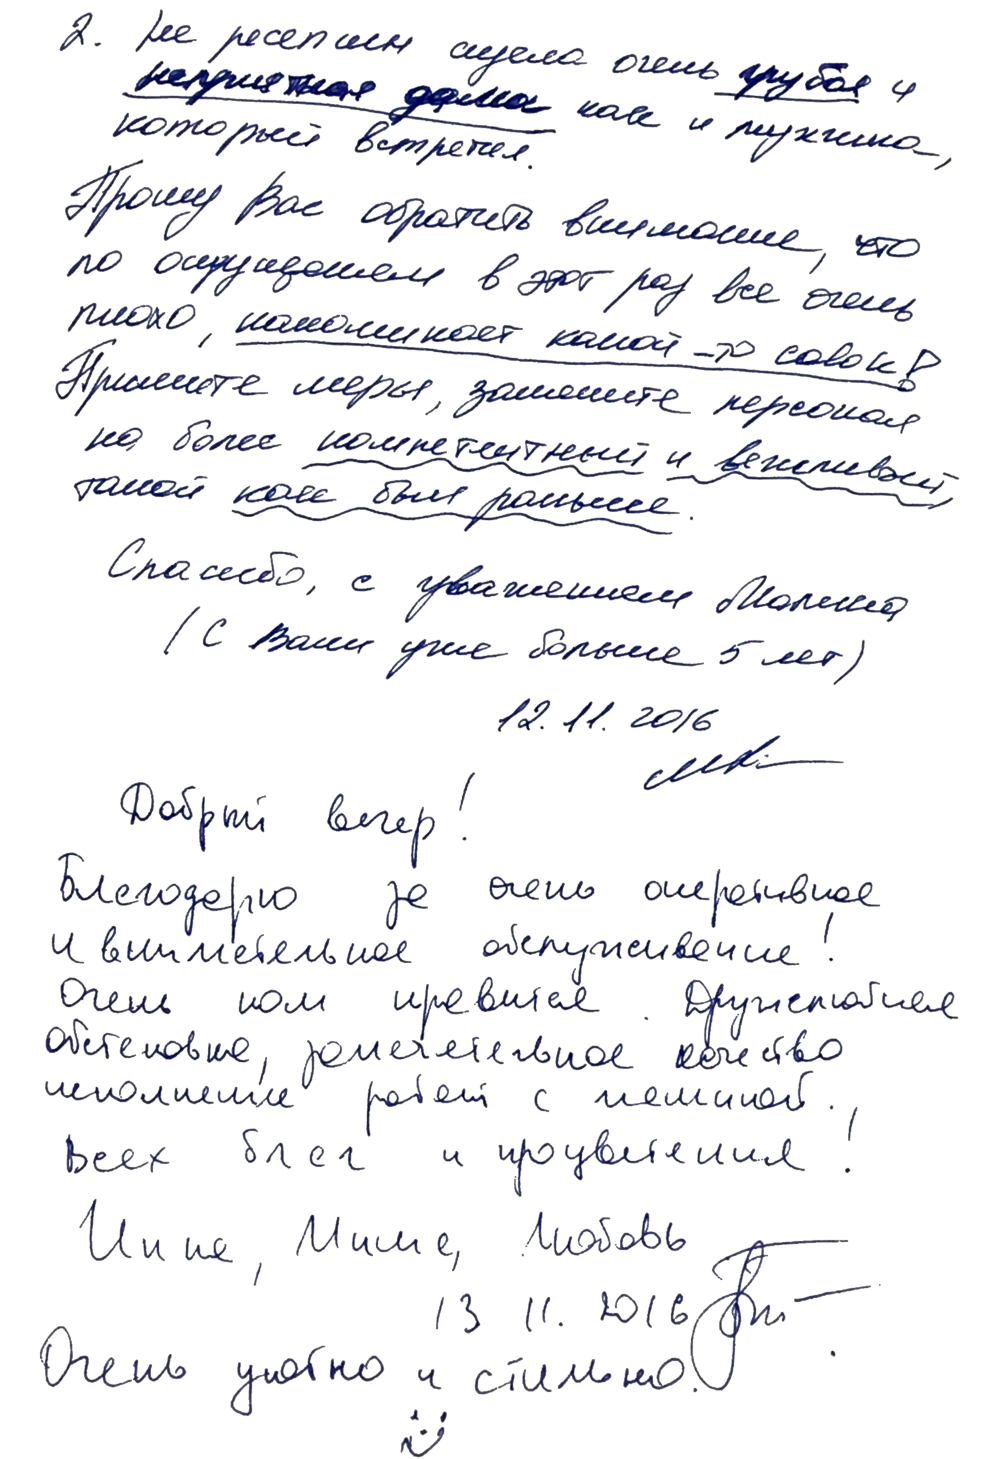 2. На ресепшн сидела очень грубая и
неприятная дама как и мужчина,
который встретил.
Прошу Вас обратить внимание, что
по ощущениям в этот раз все очень
плохо, напоминает какой-то совок!
Примите меры, замените персонал
на более компетентный и вежливый,
такой как был раньше.
Спасибо, с уважением
(С Вами уже больше 5 лет)
12.11.2016
Добрый вечер!
Благодарю за очень оперативное
и внимательное обслуживание!
Очень нам нравится. Дружелюбная
обстановка, замечательное качество
исполнение работ с машиной.
Всех благ и процветания!
Инна, Любовь
13 11. 2016
Очень уютно и стильно.